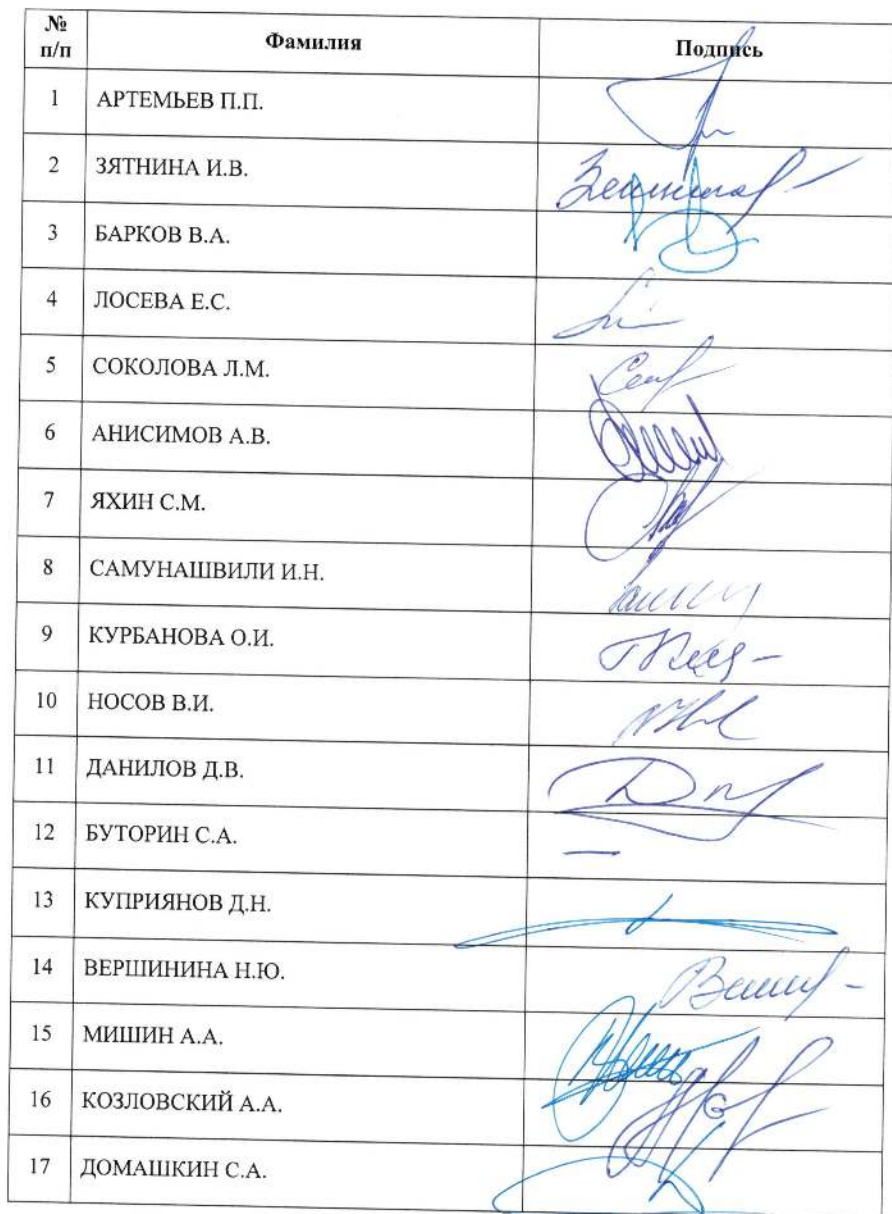 № п/п Фамилия Подпись
1 АРТЕМЬЕВ П.П.
2 ЗЯТНИНА И.В.
3 БАРКОВ В.А.
4 ЛОСЕВА Е.С.
5 СОКОЛОВА Л.М.
6 АНИСИМОВ А.В.
7 ЯХИН С.М.
8 САМУНАШВИЛИ И.Н.
9 КУРБАНОВА О.И.
10 НОСОВ В.И.
11 ДАНИЛОВ Д.В.
12 БУТОРИН С.А. —
13 КУПРИЯНОВ Д.Н.
14 ВЕРШИНИНА Н.Ю.
15 МИШИН А.А.
16 КОЗЛОВСКИЙ А.А.
17 ДОМАШКИН С.А.